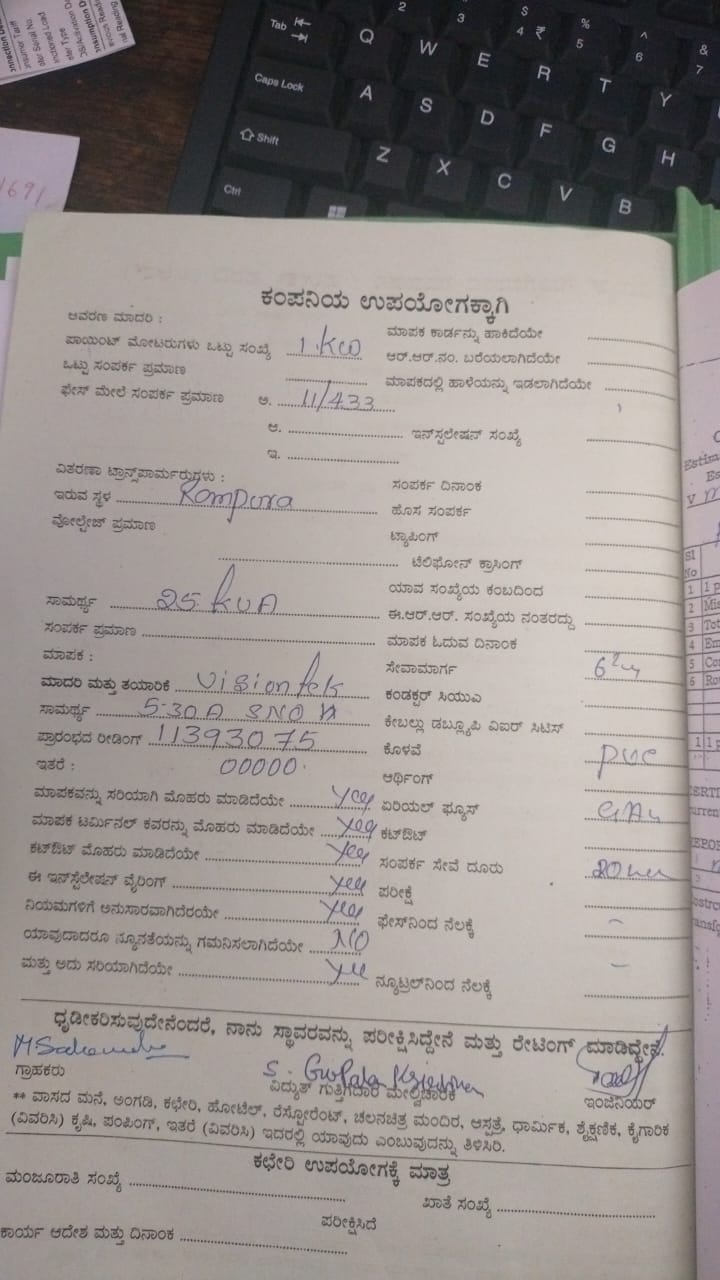 Tab
Q W E R T Y
Caps Lock A S D F G H
Shift Z X C V B
Ctrl
ಕಂಪನಿಯ ಉಪಯೋಗಕ್ಕಾಗಿ
ಆವರಣ ಮಾದರಿ :
ಮಾಪಕ ಕಾರ್ಡನ್ನು ಹಾಕಿದೆಯೇ
ಪಾಯಿಂಟ್ ಮೋಟರುಗಳು ಒಟ್ಟು ಸಂಖ್ಯೆ 1 kw
ಆರ್.ಆರ್.ನಂ. ಬರೆಯಲಾಗಿದೆಯೇ
ಒಟ್ಟು ಸಂಪರ್ಕ ಪ್ರಮಾಣ
ಮಾಪಕದಲ್ಲಿ ಹಾಳೆಯನ್ನು ಇಡಲಾಗಿದೆಯೇ
ಫೇಸ್ ಮೇಲೆ ಸಂಪರ್ಕ ಪ್ರಮಾಣ ಅ. 11/433
ಆ. ಇನ್‌ಸ್ಟಲೇಷನ್ ಸಂಖ್ಯೆ
ಇ.
ವಿತರಣಾ ಟ್ರಾನ್ಸ್‌ಪಾರ್ಮರುಗಳು :
ಸಂಪರ್ಕ ದಿನಾಂಕ
ಇರುವ ಸ್ಥಳ Rampura
ಹೊಸ ಸಂಪರ್ಕ
ವೋಲ್ಟೇಜ್ ಪ್ರಮಾಣ
ಟ್ಯಾಪಿಂಗ್
ಟೆಲಿಫೋನ್ ಕ್ರಾಸಿಂಗ್
ಯಾವ ಸಂಖ್ಯೆಯ ಕಂಬದಿಂದ
ಸಾಮರ್ಥ್ಯ 25 KVA
ಈ.ಆರ್.ಆರ್. ಸಂಖ್ಯೆಯ ನಂತರದ್ದು
ಸಂಪರ್ಕ ಪ್ರಮಾಣ
ಮಾಪಕ ಓದುವ ದಿನಾಂಕ
ಮಾಪಕ :
ಸೇವಾಮಾರ್ಗ
ಮಾದರಿ ಮತ್ತು ತಯಾರಿಕೆ Visiontek
ಕಂಡಕ್ಟರ್ ಸಿಯುಎ
ಸಾಮರ್ಥ್ಯ 5-30A SNO
ಕೇಬಲ್ಲು ಡಬ್ಲ್ಯೂಪಿ ವಿಐರ್ ಸಿಟಿಸ್
ಪ್ರಾರಂಭದ ರೀಡಿಂಗ್ 11393075
ಕೊಳವೆ PVC
ಇತರೆ : 00000
ಆರ್ಥಿಂಗ್
ಮಾಪಕವನ್ನು ಸರಿಯಾಗಿ ಮೊಹರು ಮಾಡಿದೆಯೇ yes
ಏರಿಯಲ್ ಫ್ಯೂಸ್
ಮಾಪಕ ಟರ್ಮಿನಲ್ ಕವರನ್ನು ಮೊಹರು ಮಾಡಿದೆಯೇ yes
ಕಟ್‌ಔಟ್
ಕಟ್‌ಔಟ್ ಮೊಹರು ಮಾಡಿದೆಯೇ yes
ಸಂಪರ್ಕ ಸೇವೆ ದೂರು
ಈ ಇನ್‌ಸ್ಟೆಲೇಷನ್ ವೈರಿಂಗ್ yes
ಪರೀಕ್ಷೆ
ನಿಯಮಗಳಿಗೆ ಅನುಸಾರವಾಗಿದೆರಯೇ yes
ಫೇಸ್‌ನಿಂದ ನೆಲಕ್ಕೆ –
ಯಾವುದಾದರೂ ನ್ಯೂನತೆಯನ್ನು ಗಮನಿಸಲಾಗಿದೆಯೇ NO
ಮತ್ತು ಅದು ಸರಿಯಾಗಿದೆಯೇ yes
ನ್ಯೂಟ್ರಲ್‌ನಿಂದ ನೆಲಕ್ಕೆ –
ಧೃಡೀಕರಿಸುವುದೇನೆಂದರೆ, ನಾನು ಸ್ಥಾವರವನ್ನು ಪರೀಕ್ಷಿಸಿದ್ದೇನೆ ಮತ್ತು ರೇಟಿಂಗ್ ಮಾಡಿದ್ದೇನೆ.
ಗ್ರಾಹಕರು
ವಿದ್ಯುತ್ ಗುತ್ತಿಗೆದಾರ ಮೇಲ್ವಿಚಾರಕ
ಇಂಜಿನಿಯರ್
** ವಾಸದ ಮನೆ, ಅಂಗಡಿ, ಕಛೇರಿ, ಹೋಟೆಲ್, ರೆಸ್ಟೋರೆಂಟ್, ಚಲನಚಿತ್ರ ಮಂದಿರ, ಆಸ್ಪತ್ರೆ, ಧಾರ್ಮಿಕ, ಶೈಕ್ಷಣಿಕ, ಕೈಗಾರಿಕ
(ವಿವರಿಸಿ) ಕೃಷಿ, ಪಂಪಿಂಗ್, ಇತರೆ (ವಿವರಿಸಿ) ಇದರಲ್ಲಿ ಯಾವುದು ಎಂಬುವುದನ್ನು ತಿಳಿಸಿರಿ.
ಕಛೇರಿ ಉಪಯೋಗಕ್ಕೆ ಮಾತ್ರ
ಮಂಜೂರಾತಿ ಸಂಖ್ಯೆ
ಖಾತೆ ಸಂಖ್ಯೆ
ಪರೀಕ್ಷಿಸಿದೆ
ಕಾರ್ಯ ಆದೇಶ ಮತ್ತು ದಿನಾಂಕ